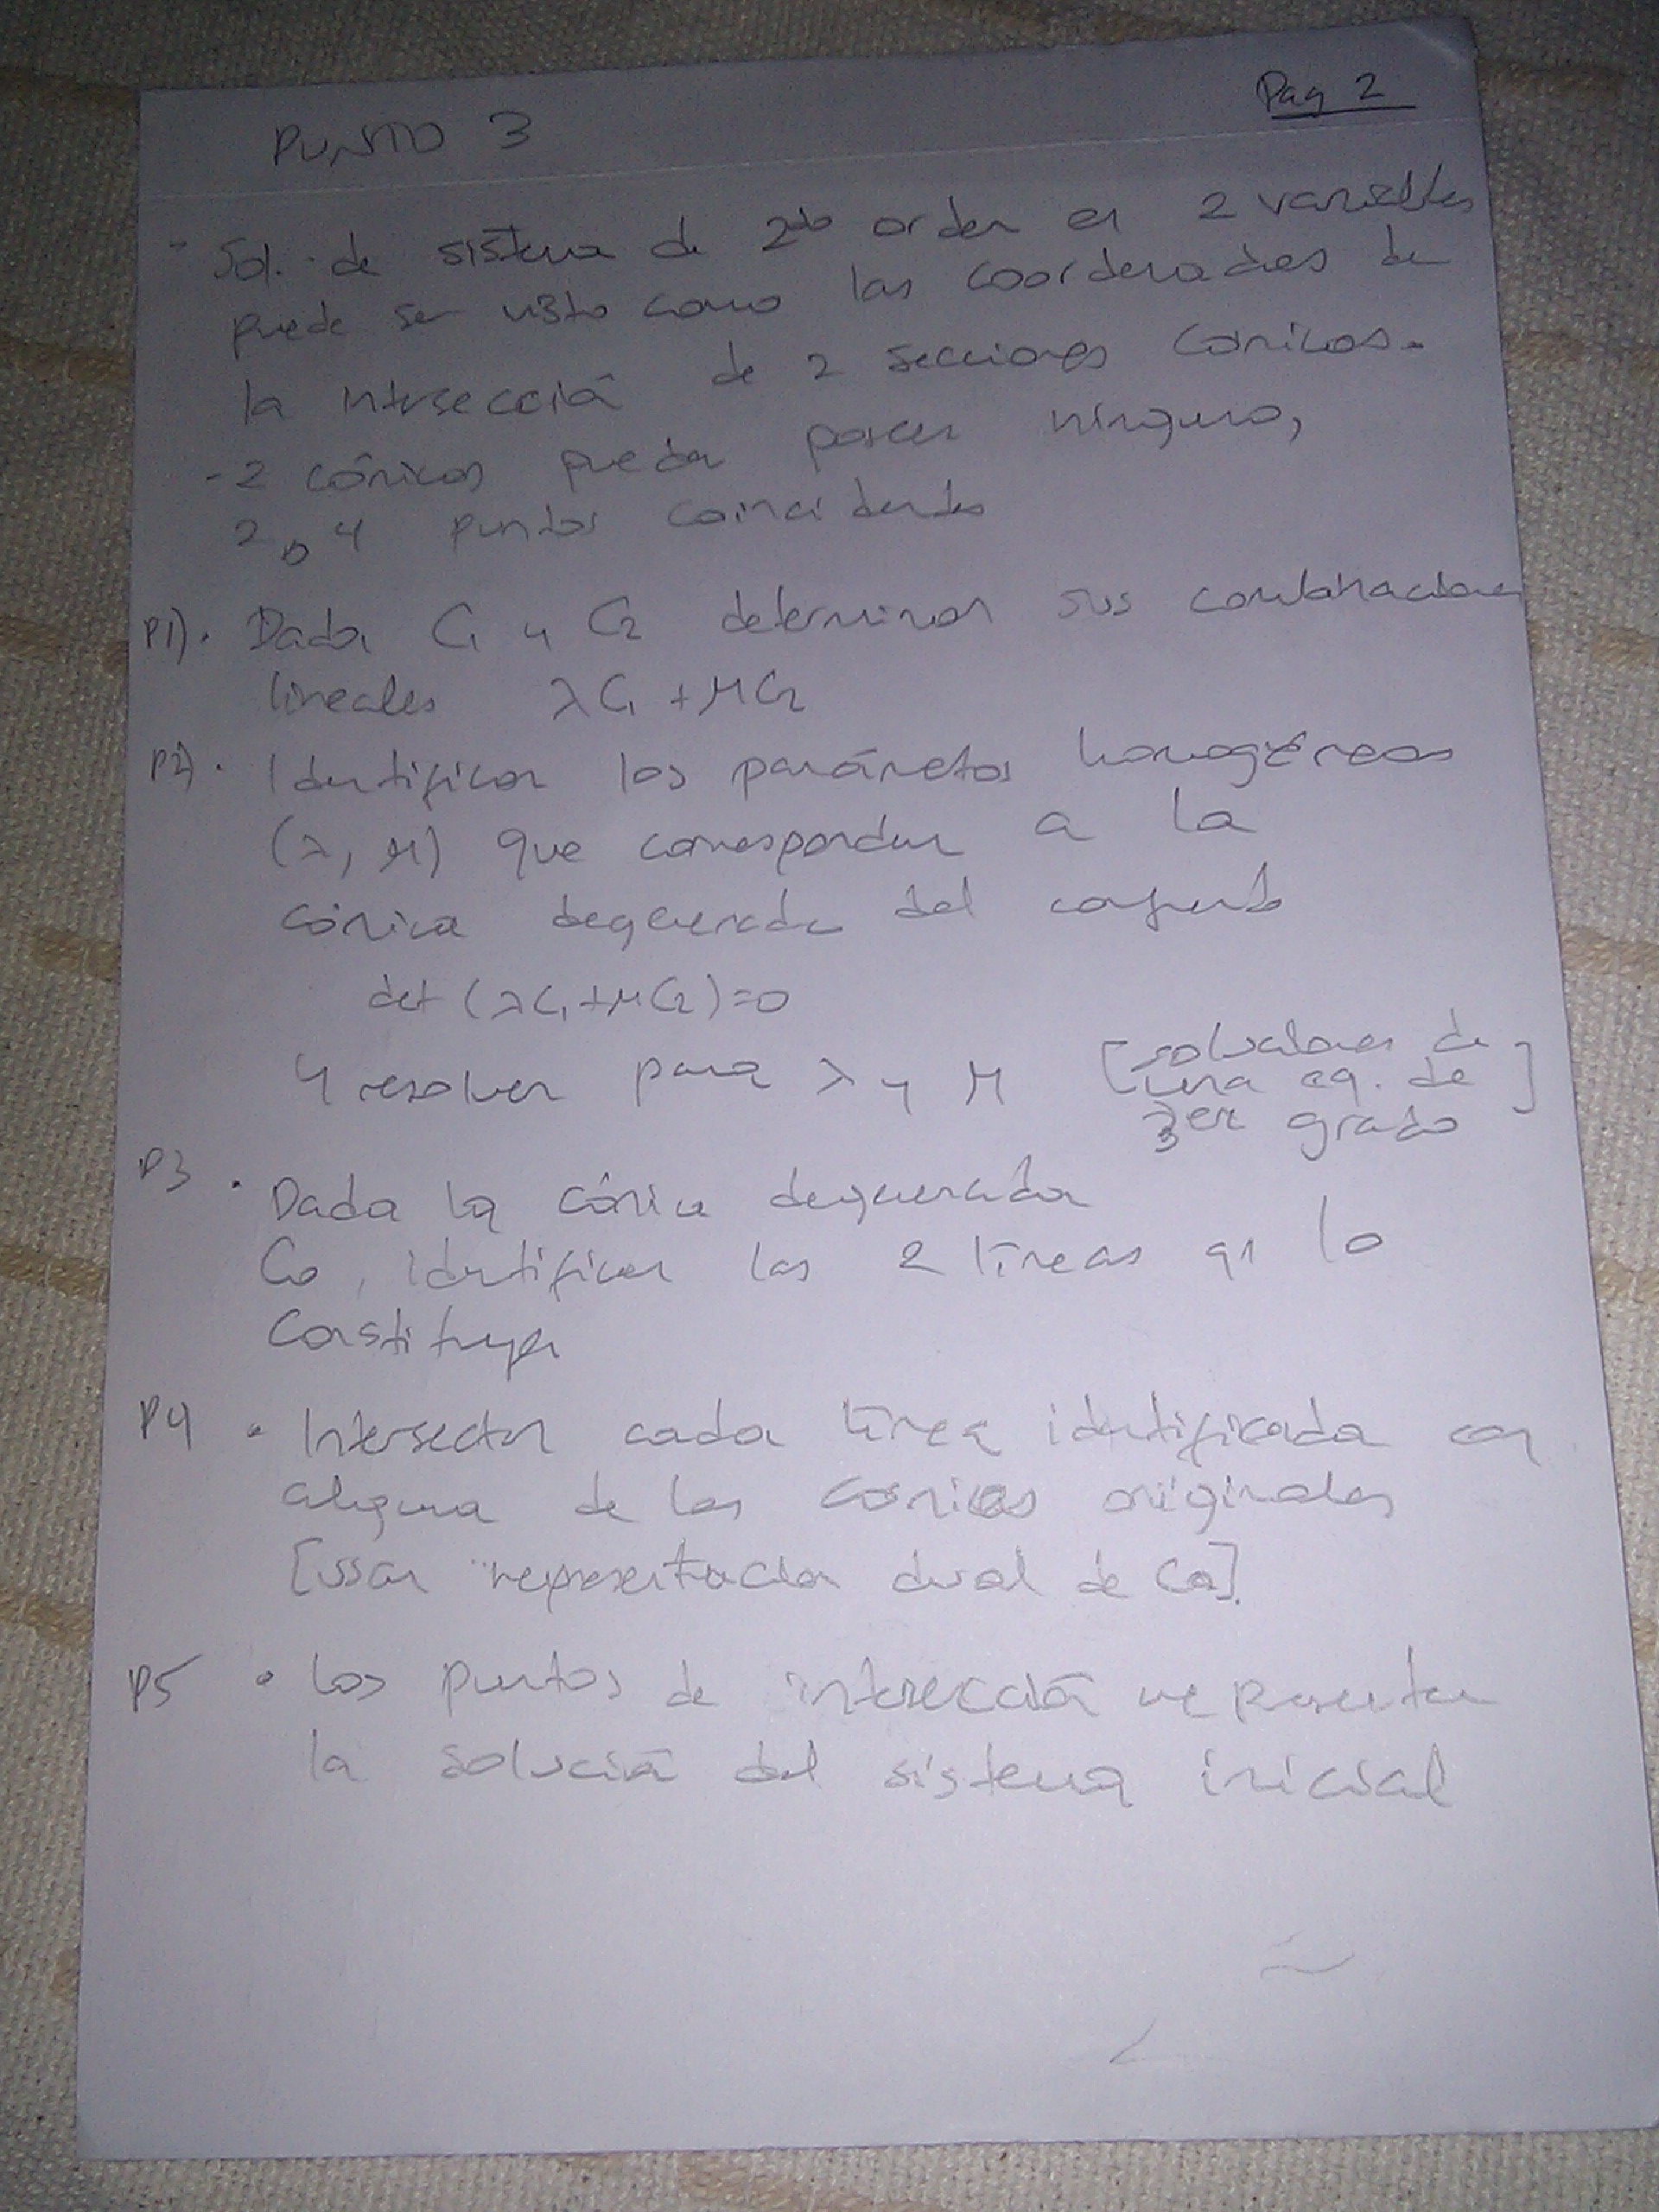 Pag 2
PUNTO 3
- Sol. de sistema de 2do orden en 2 variables
puede ser visto como las coordenadas de
la intersección de 2 secciones cónicas.
- 2 cónicas pueden poseer ninguno,
2 o 4 puntos coincidentes
P1). Dadas C1 y C2 determinar sus combinaciones
lineales λC1 + μC2
P2). Identificar los parámetros homogéneos
(λ, μ) que corresponden a la
cónica degenerada del conjunto
det (λC1+μC2)=0
y resolver para λ y μ [soluciones de
una eq. de]
3er grado
P3 . Dada la cónica degenerada
Co, identificar las 2 líneas qn lo
constituyen
P4 . Intersectar cada línea identificada con
alguna de las cónicas originales
[usar representación dual de Co].
P5 . Los puntos de intersección representan
la solución del sistema inicial